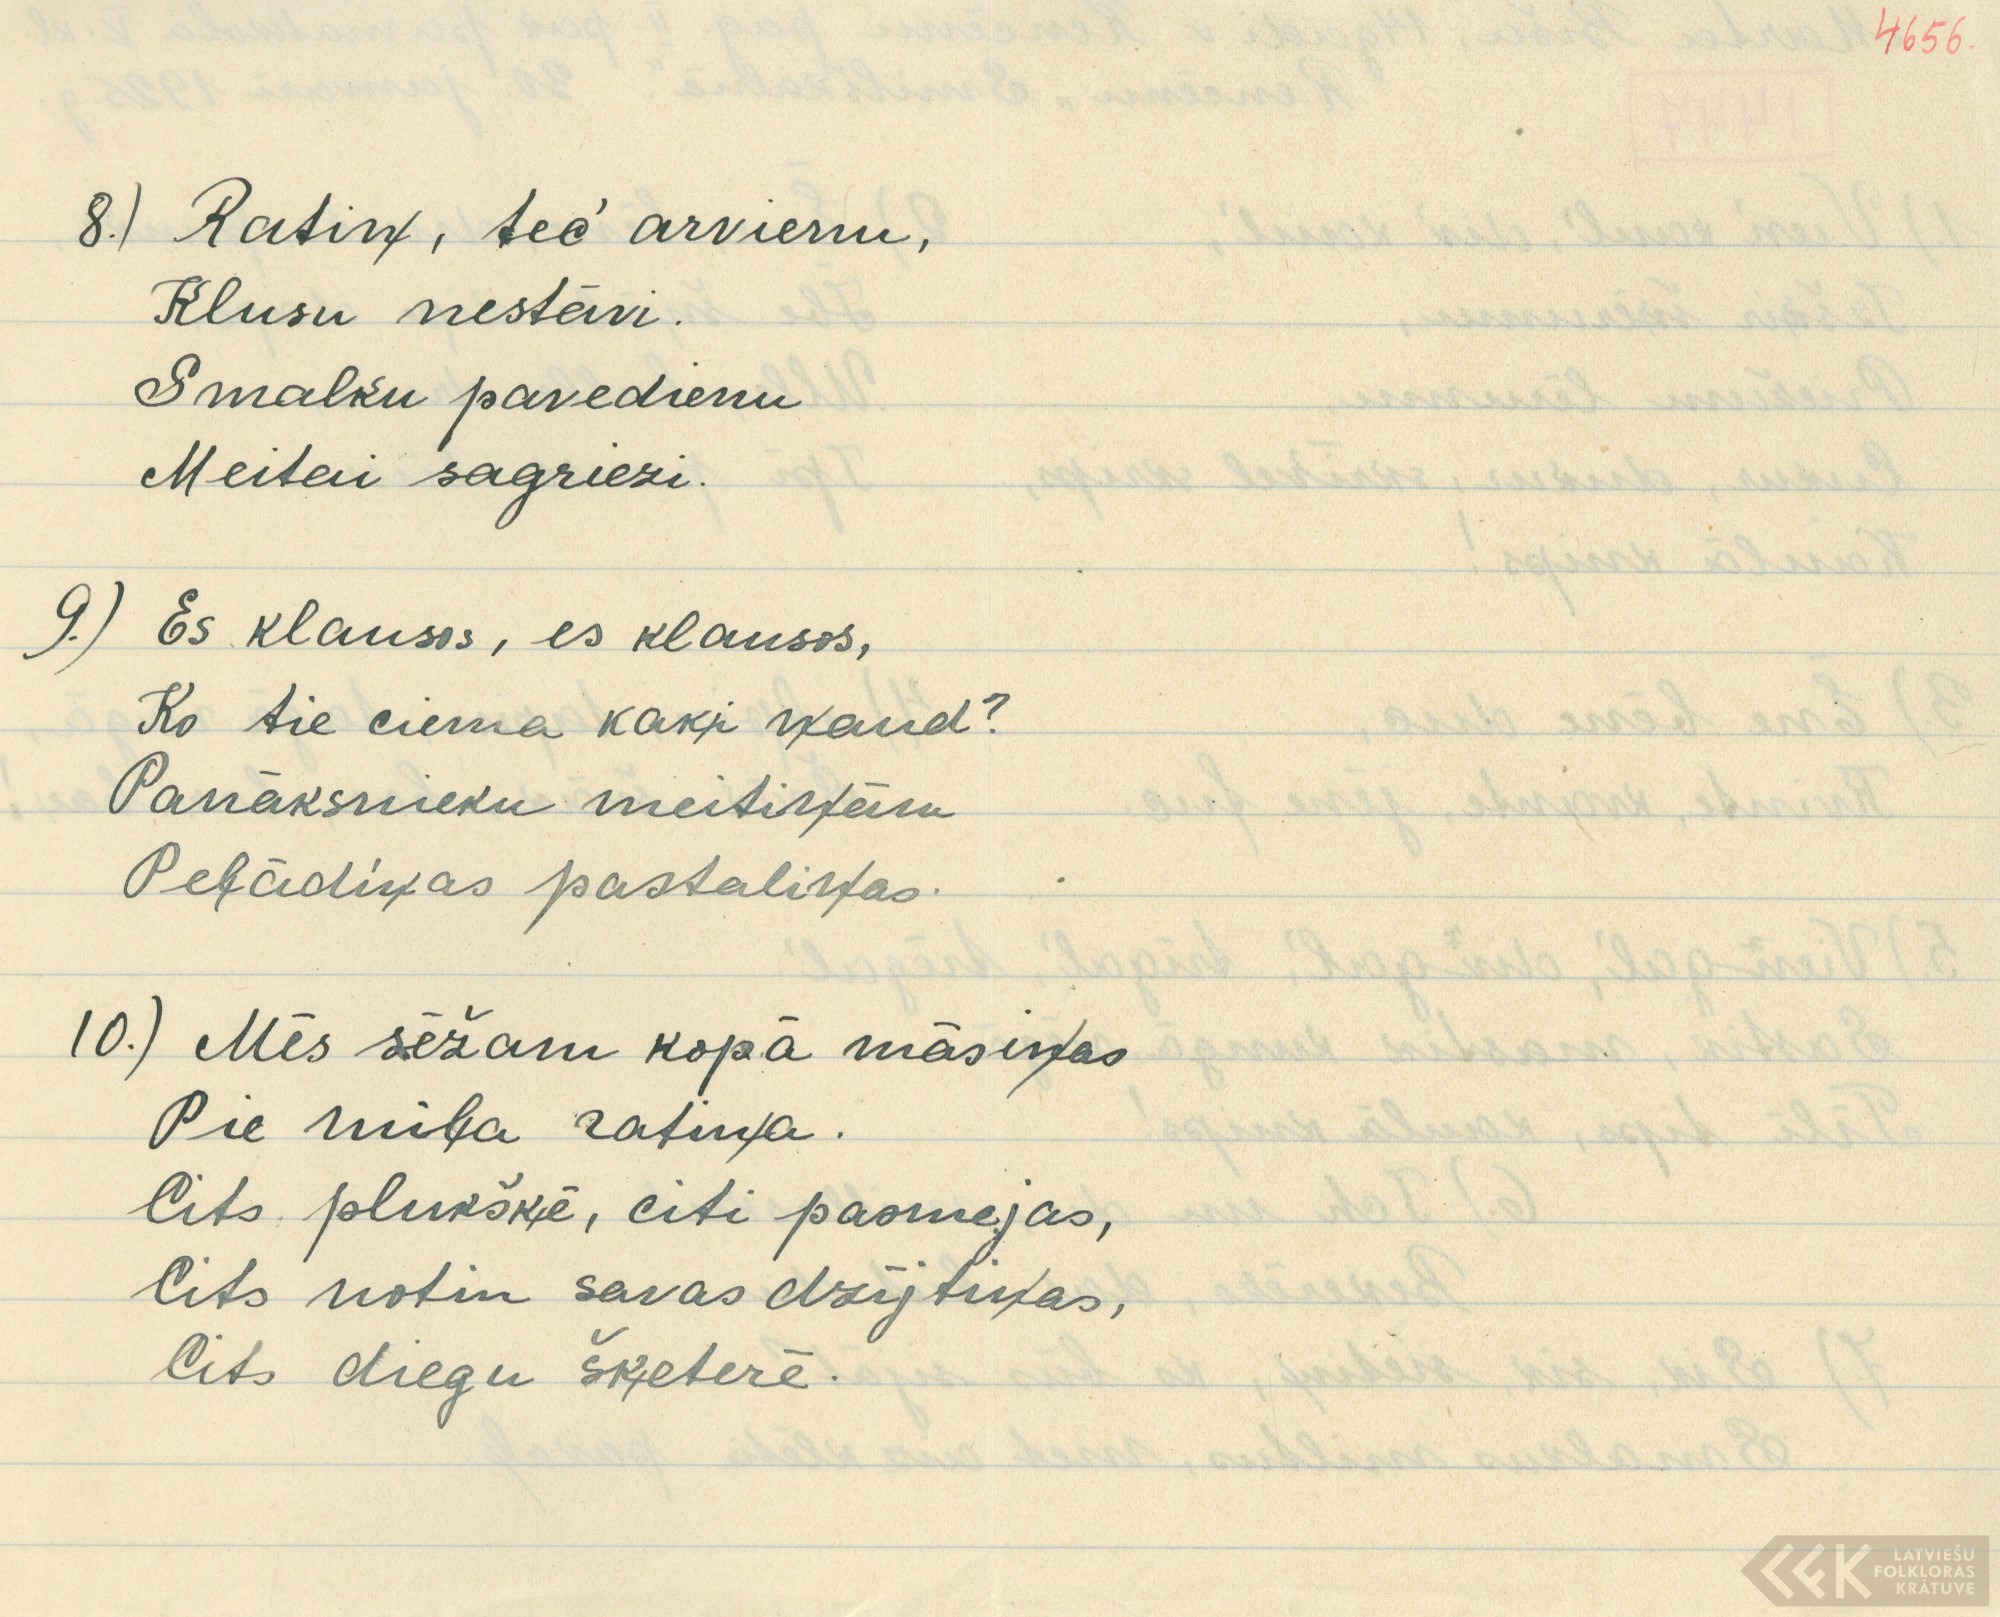 4656.
8.) Ratiņ, teč arvienu,
Klusu nestāvi.
Smalku pavedienu
Meitai sagriezi.
9.) Es klausos, es klausos,
Ko tie ciema kaķi ņaud?
Panāksnieku meitiņām
Peļādiņas pastaliņas.
10.) Mēs sēžam kopā māsiņas
Pie mīļa ratiņa.
Cits plukšķē, citi pasmejas,
Cits notin savas dzījtiņas,
Cits diegu šķeterē.
LATVIEŠU
FOLKLORAS
KRĀTUVE